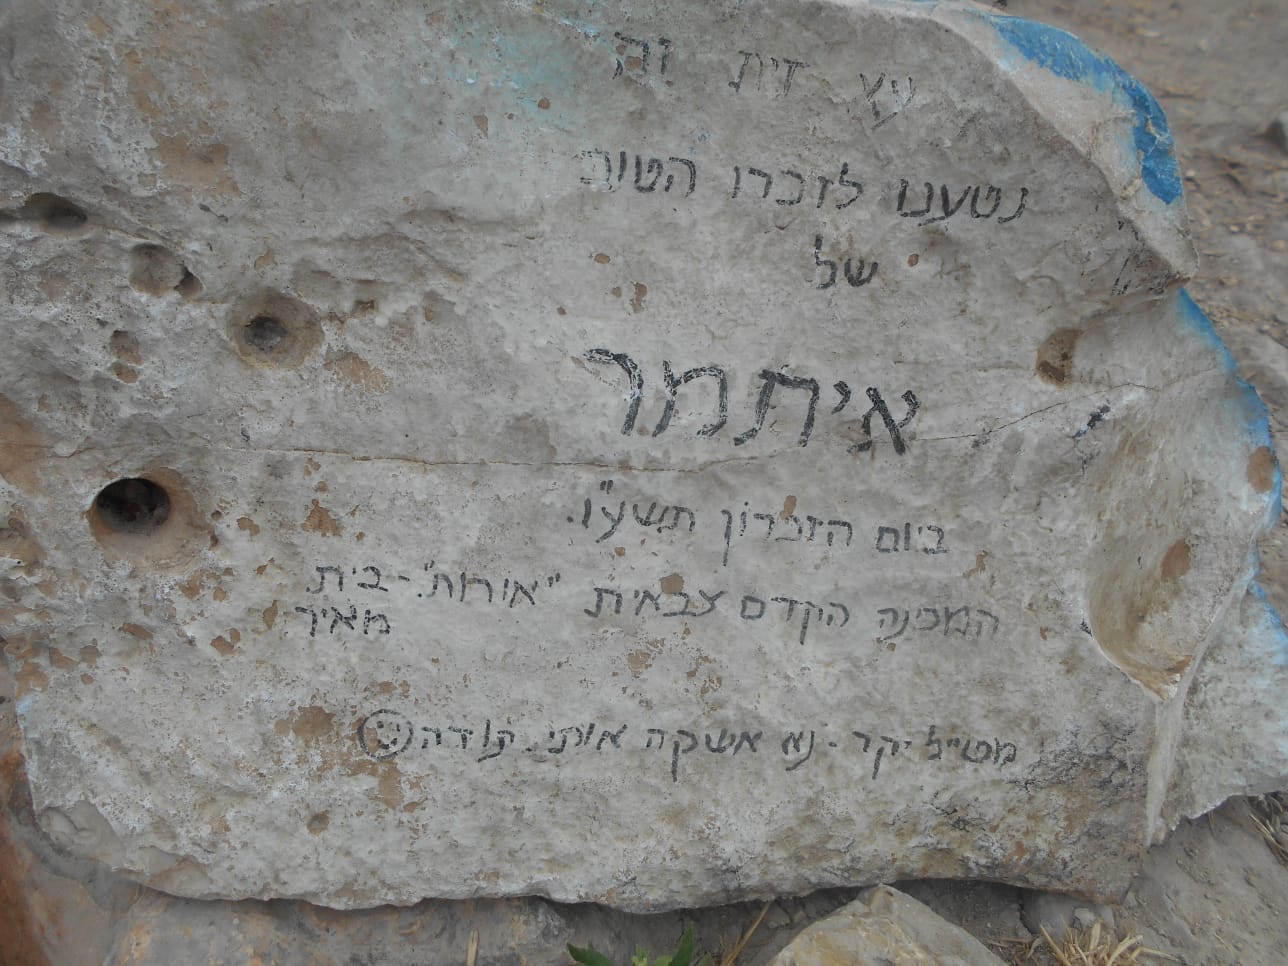 עץ זית זה
נטענו לזכרו הטוב
של
איתמר
ביום הזכרון תשע"ו.
המכינה הקדם צבאית "אורות". - בית
מאיר
מטייל יקר - נא אשקה אותי. תודה ☺